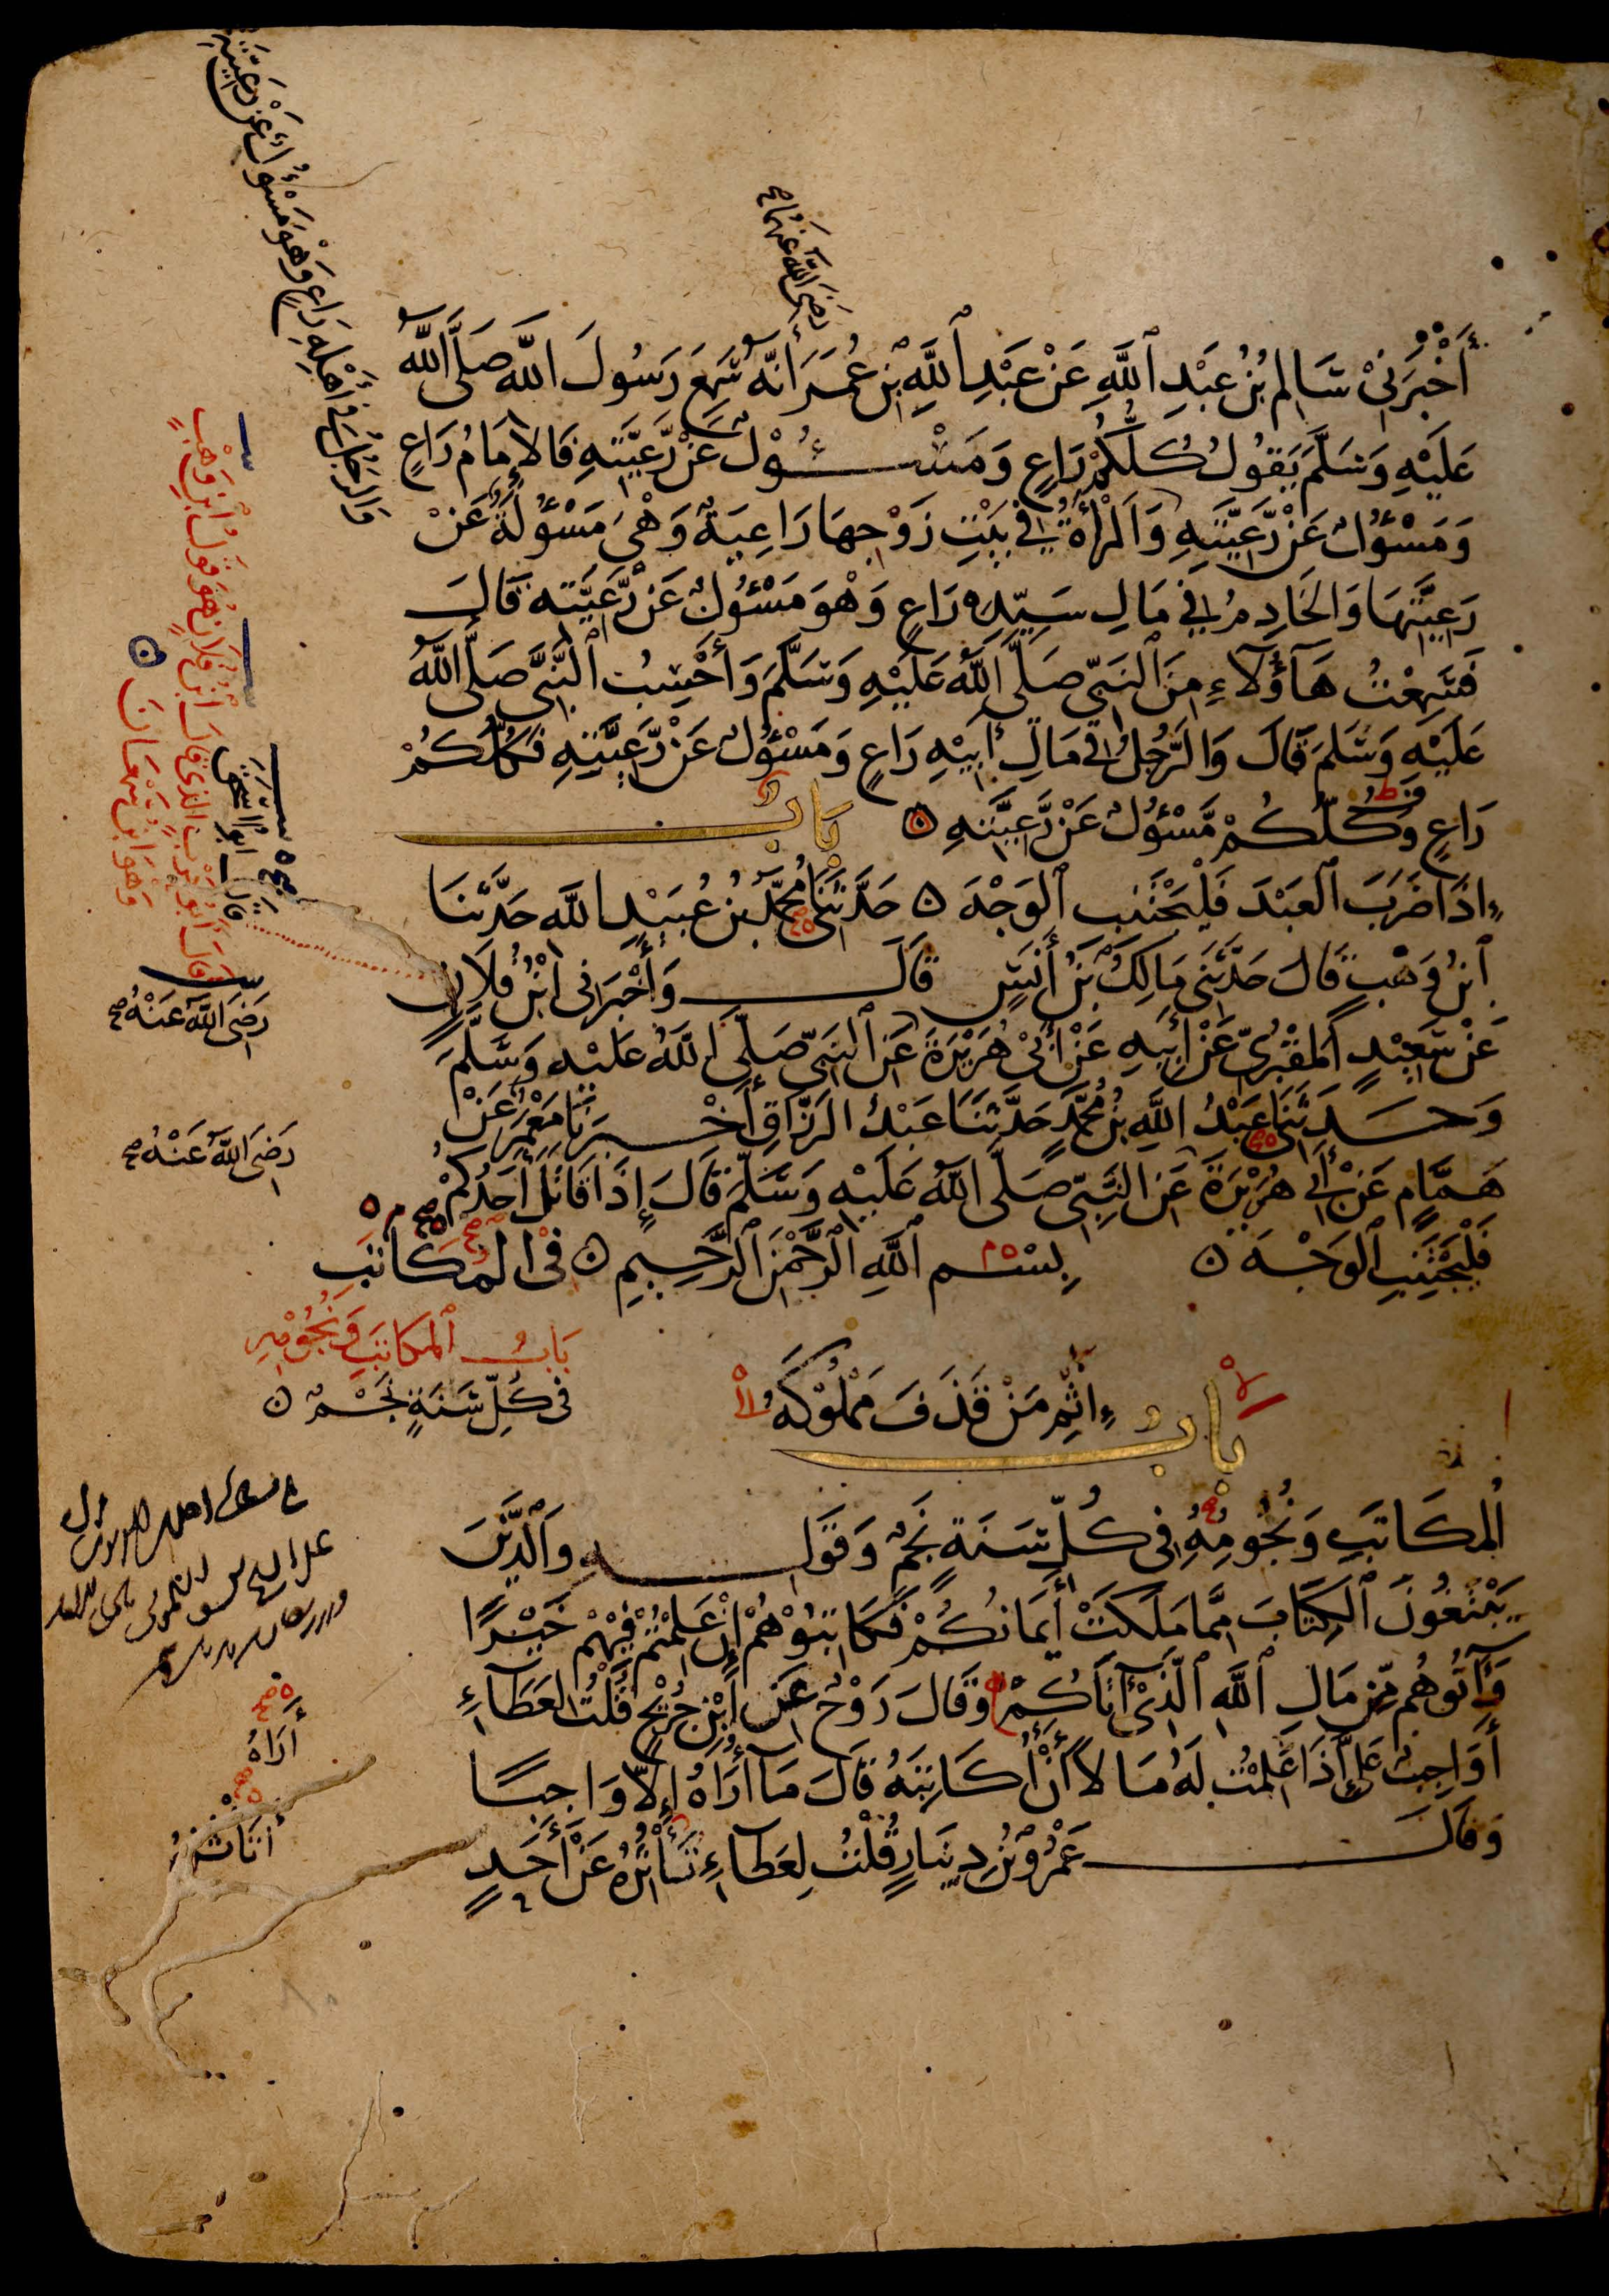 رَضِيَ اللَّهُ عَنْهُمَا صح
أَخْبَرَنِي سَالِمُ بْنُ عَبْدِ اللَّهِ عَنْ عَبْدِ اللَّهِ بْنِ عُمَرَ أَنَّهُ سَمِعَ رَسُولَ اللَّهِ صَلَّى اللَّهُ
عَلَيْهِ وَسَلَّمَ يَقُولُ كُلُّكُمْ رَاعٍ وَمَسْئُولٌ عَنْ رَعِيَّتِهِ فَالْإِمَامُ رَاعٍ
وَمَسْئُولٌ عَنْ رَعِيَّتِهِ وَالْمَرْأَةُ فِي بَيْتِ زَوْجِهَا رَاعِيَةٌ وَهْيَ مَسْئُولَةٌ عَنْ
رَعِيَّتِهَا وَالْخَادِمُ فِي مَالِ سَيِّدِهِ رَاعٍ وَهْوَ مَسْئُولٌ عَنْ رَعِيَّتِهِ قَالَ
فَسَمِعْتُ هَؤُلَاءِ مِنَ النَّبِيِّ صَلَّى اللَّهُ عَلَيْهِ وَسَلَّمَ وَأَحْسِبُ النَّبِيَّ صَلَّى اللَّهُ
عَلَيْهِ وَسَلَّمَ قَالَ وَالرَّجُلُ فِي مَالِ أَبِيهِ رَاعٍ وَمَسْئُولٌ عَنْ رَعِيَّتِهِ فَكُلُّكُمْ
رَاعٍ وَكُلُّكُمْ مَسْئُولٌ عَنْ رَعِيَّتِهِ بَابٌ
إِذَا ضَرَبَ الْعَبْدَ فَلْيَجْتَنِبِ الْوَجْهَ حَدَّثَنَا مُحَمَّدُ بْنُ عُبَيْدِ اللَّهِ حَدَّثَنَا
ابْنُ وَهْبٍ قَالَ حَدَّثَنِي مَالِكُ بْنُ أَنَسٍ قَالَ وَأَخْبَرَنِي ابْنُ فُلَانٍ
عَنْ سَعِيدٍ الْمَقْبُرِيِّ عَنْ أَبِيهِ عَنْ أَبِي هُرَيْرَةَ عَنِ النَّبِيِّ صَلَّى اللَّهُ عَلَيْهِ وَسَلَّمَ
وَحَدَّثَنَا عَبْدُ اللَّهِ بْنُ مُحَمَّدٍ حَدَّثَنَا عَبْدُ الرَّزَّاقِ أَخْبَرَنَا مَعْمَرٌ عَنْ
هَمَّامٍ عَنْ أَبِي هُرَيْرَةَ عَنِ النَّبِيِّ صَلَّى اللَّهُ عَلَيْهِ وَسَلَّمَ قَالَ إِذَا قَاتَلَ أَحَدُكُمْ
فَلْيَجْتَنِبِ الْوَجْهَ بِسْمِ اللَّهِ الرَّحْمَنِ الرَّحِيمِ فِي الْمُكَاتَبِ
بَابُ إِثْمِ مَنْ قَذَفَ مَمْلُوكَهُ
الْمُكَاتَبِ وَنُجُومِهِ فِي كُلِّ سَنَةٍ نَجْمٌ وَقَوْلِهِ وَالَّذِينَ
يَبْتَغُونَ الْكِتَابَ مِمَّا مَلَكَتْ أَيْمَانُكُمْ فَكَاتِبُوهُمْ إِنْ عَلِمْتُمْ فِيهِمْ خَيْرًا
وَآتُوهُمْ مِنْ مَالِ اللَّهِ الَّذِي آتَاكُمْ وَقَالَ رَوْحٌ عَنِ ابْنِ جُرَيْجٍ قُلْتُ لِعَطَاءٍ
أَوَاجِبٌ عَلَيَّ إِذَا عَلِمْتُ لَهُ مَالًا أَنْ أُكَاتِبَهُ قَالَ مَا أُرَاهُ إِلَّا وَاجِبًا
وَقَالَ عَمْرُو بْنُ دِينَارٍ قُلْتُ لِعَطَاءٍ تَأْثُرُهُ عَنْ أَحَدٍ
وَالرَّجُلُ فِي أَهْلِهِ رَاعٍ وَهْوَ مَسْئُولٌ عَنْ رَعِيَّتِهِ
قَالَ أَبُو إِسْحَقَ
قَالَ أَبُو حَرْبٍ الَّذِي قَالَ ابْنُ فُلَانٍ هُوَ قَوْلُ ابْنِ وَهْبٍ
وَهْوَ ابْنُ سَمْعَانَ
رَضِيَ اللَّهُ عَنْهُ صح
رَضِيَ اللَّهُ عَنْهُ صح
بَابُ الْمُكَاتَبِ وَنُجُومِهِ
فِي كُلِّ سَنَةٍ نَجْمٌ
أُرَاهُ
أَتَأْثُرُهُ